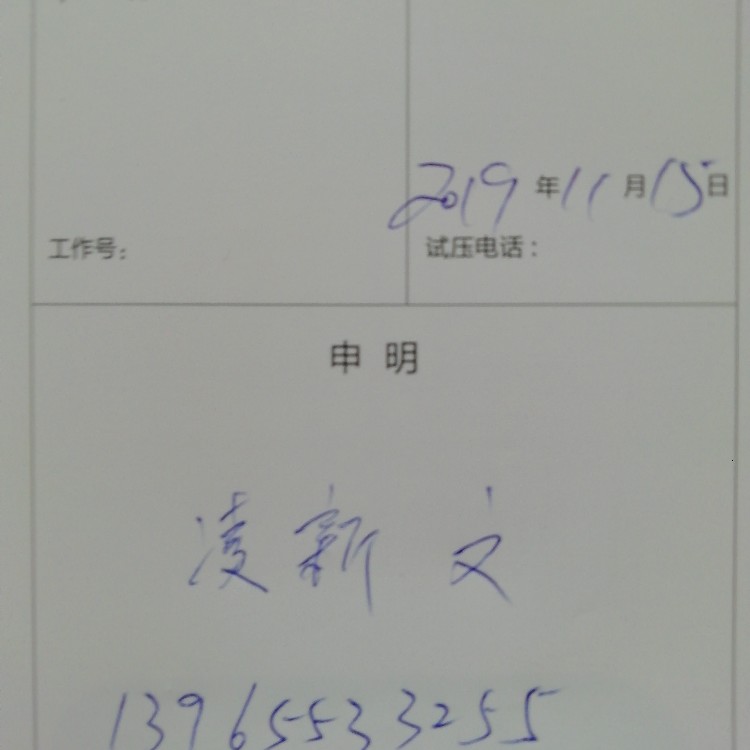 2019年11月15日
工作号：
试压电话：
申 明
凌新文
13965533255